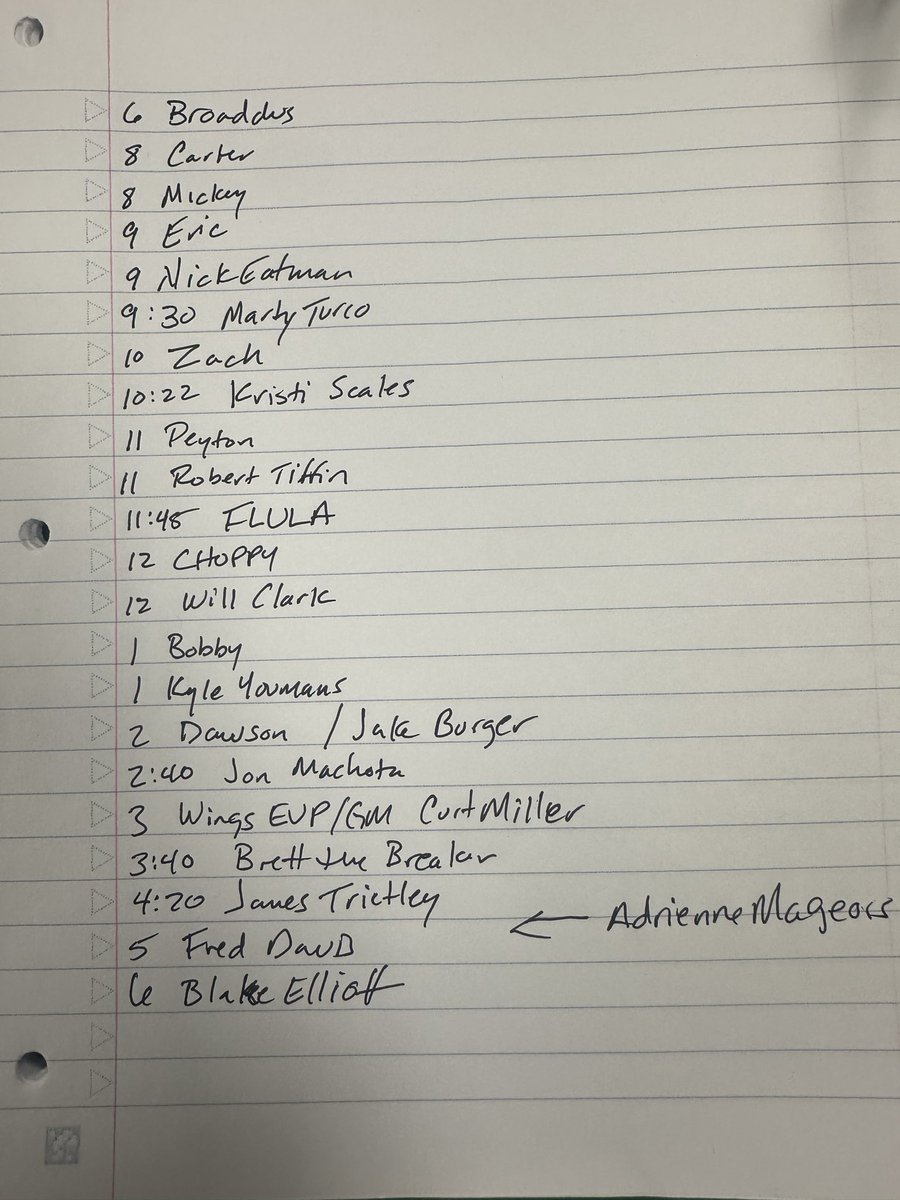 6 Broaddus
8 Carter
8 Mickey
9 Eric
9 Nick Eatman
9:30 Marty Turco
10 Zach
10:22 Kristi Scales
11 Peyton
11 Robert Tiffin
11:45 FLULA
12 CHOPPY
12 Will Clark
1 Bobby
1 Kyle Youmans
2 Dawson / Jake Burger
2:40 Jon Machota
3 Wings EVP/GM Curt Miller
3:40 Brett the Breaker
4:20 James
← Adrienne
5 Fred
6 Blake Elliott